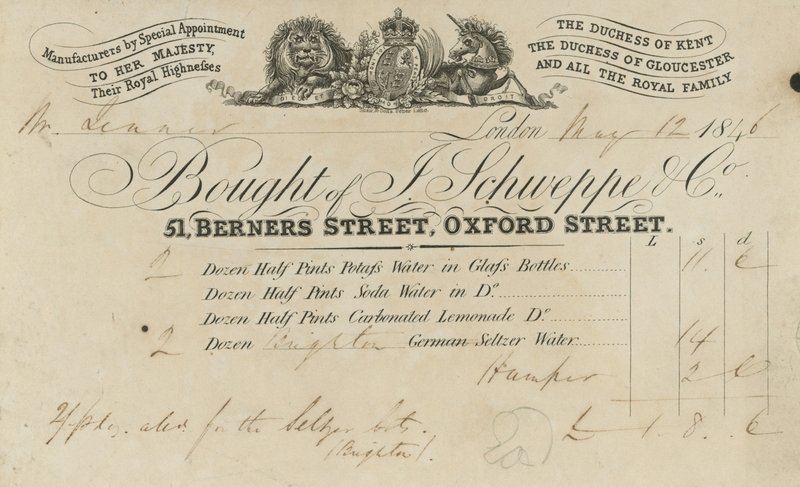 Manufacturers by Special Appointment
TO HER MAJESTY,
Their Royal Highneſses
THE DUCHESS OF KENT
THE DUCHESS OF GLOUCESTER
AND ALL THE ROYAL FAMILY
DIEU ET MON DROIT
Mr.
London May 12 1846
Bought of J. Schweppe & Co.,
51, BERNERS STREET, OXFORD STREET.
L s d
2 Dozen Half Pints Potaſs Water in Glaſs Bottles 11. 6
Dozen Half Pints Soda Water in Do.
Dozen Half Pints Carbonated Lemonade Do.
2 Dozen Brighton German Seltzer Water 14
Hamper 2
for the Seltzer bots.
(Brighton).
£ 1. 8. 6